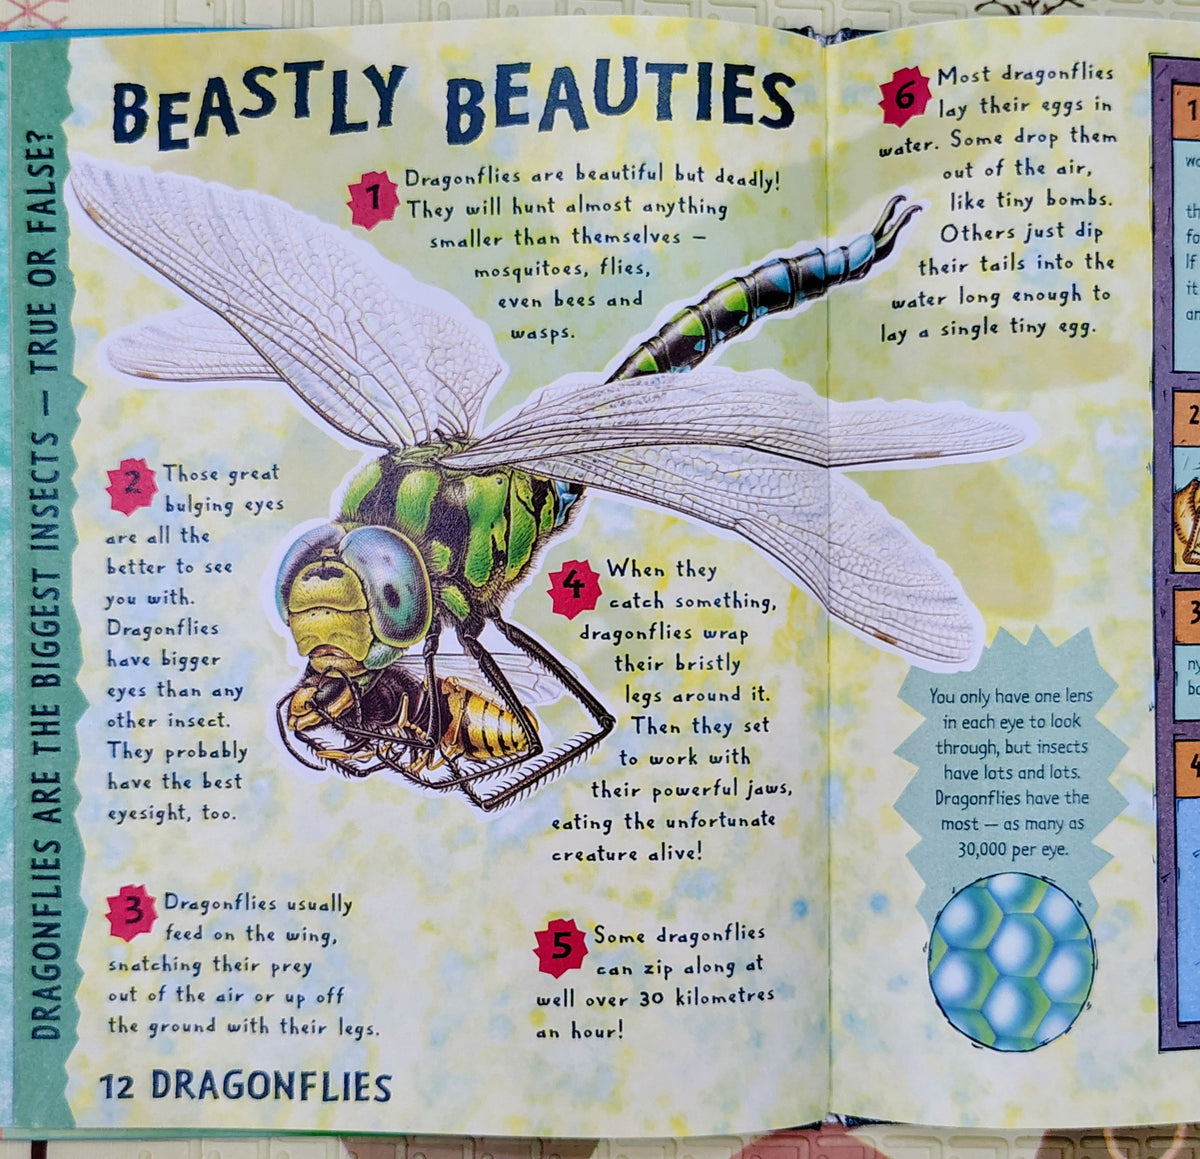 BEASTLY BEAUTIES
DRAGONFLIES ARE THE BIGGEST INSECTS — TRUE OR FALSE?
1 Dragonflies are beautiful but deadly!
They will hunt almost anything
smaller than themselves —
mosquitoes, flies,
even bees and
wasps.
2 Those great
bulging eyes
are all the
better to see
you with.
Dragonflies
have bigger
eyes than any
other insect.
They probably
have the best
eyesight, too.
3 Dragonflies usually
feed on the wing,
snatching their prey
out of the air or up off
the ground with their legs.
4 When they
catch something,
dragonflies wrap
their bristly
legs around it.
Then they set
to work with
their powerful jaws,
eating the unfortunate
creature alive!
5 Some dragonflies
can zip along at
well over 30 kilometres
an hour!
6 Most dragonflies
lay their eggs in
water. Some drop them
out of the air,
like tiny bombs.
Others just dip
their tails into the
water long enough to
lay a single tiny egg.
You only have one lens
in each eye to look
through, but insects
have lots and lots.
Dragonflies have the
most — as many as
30,000 per eye.
12 DRAGONFLIES
1
2
3
4